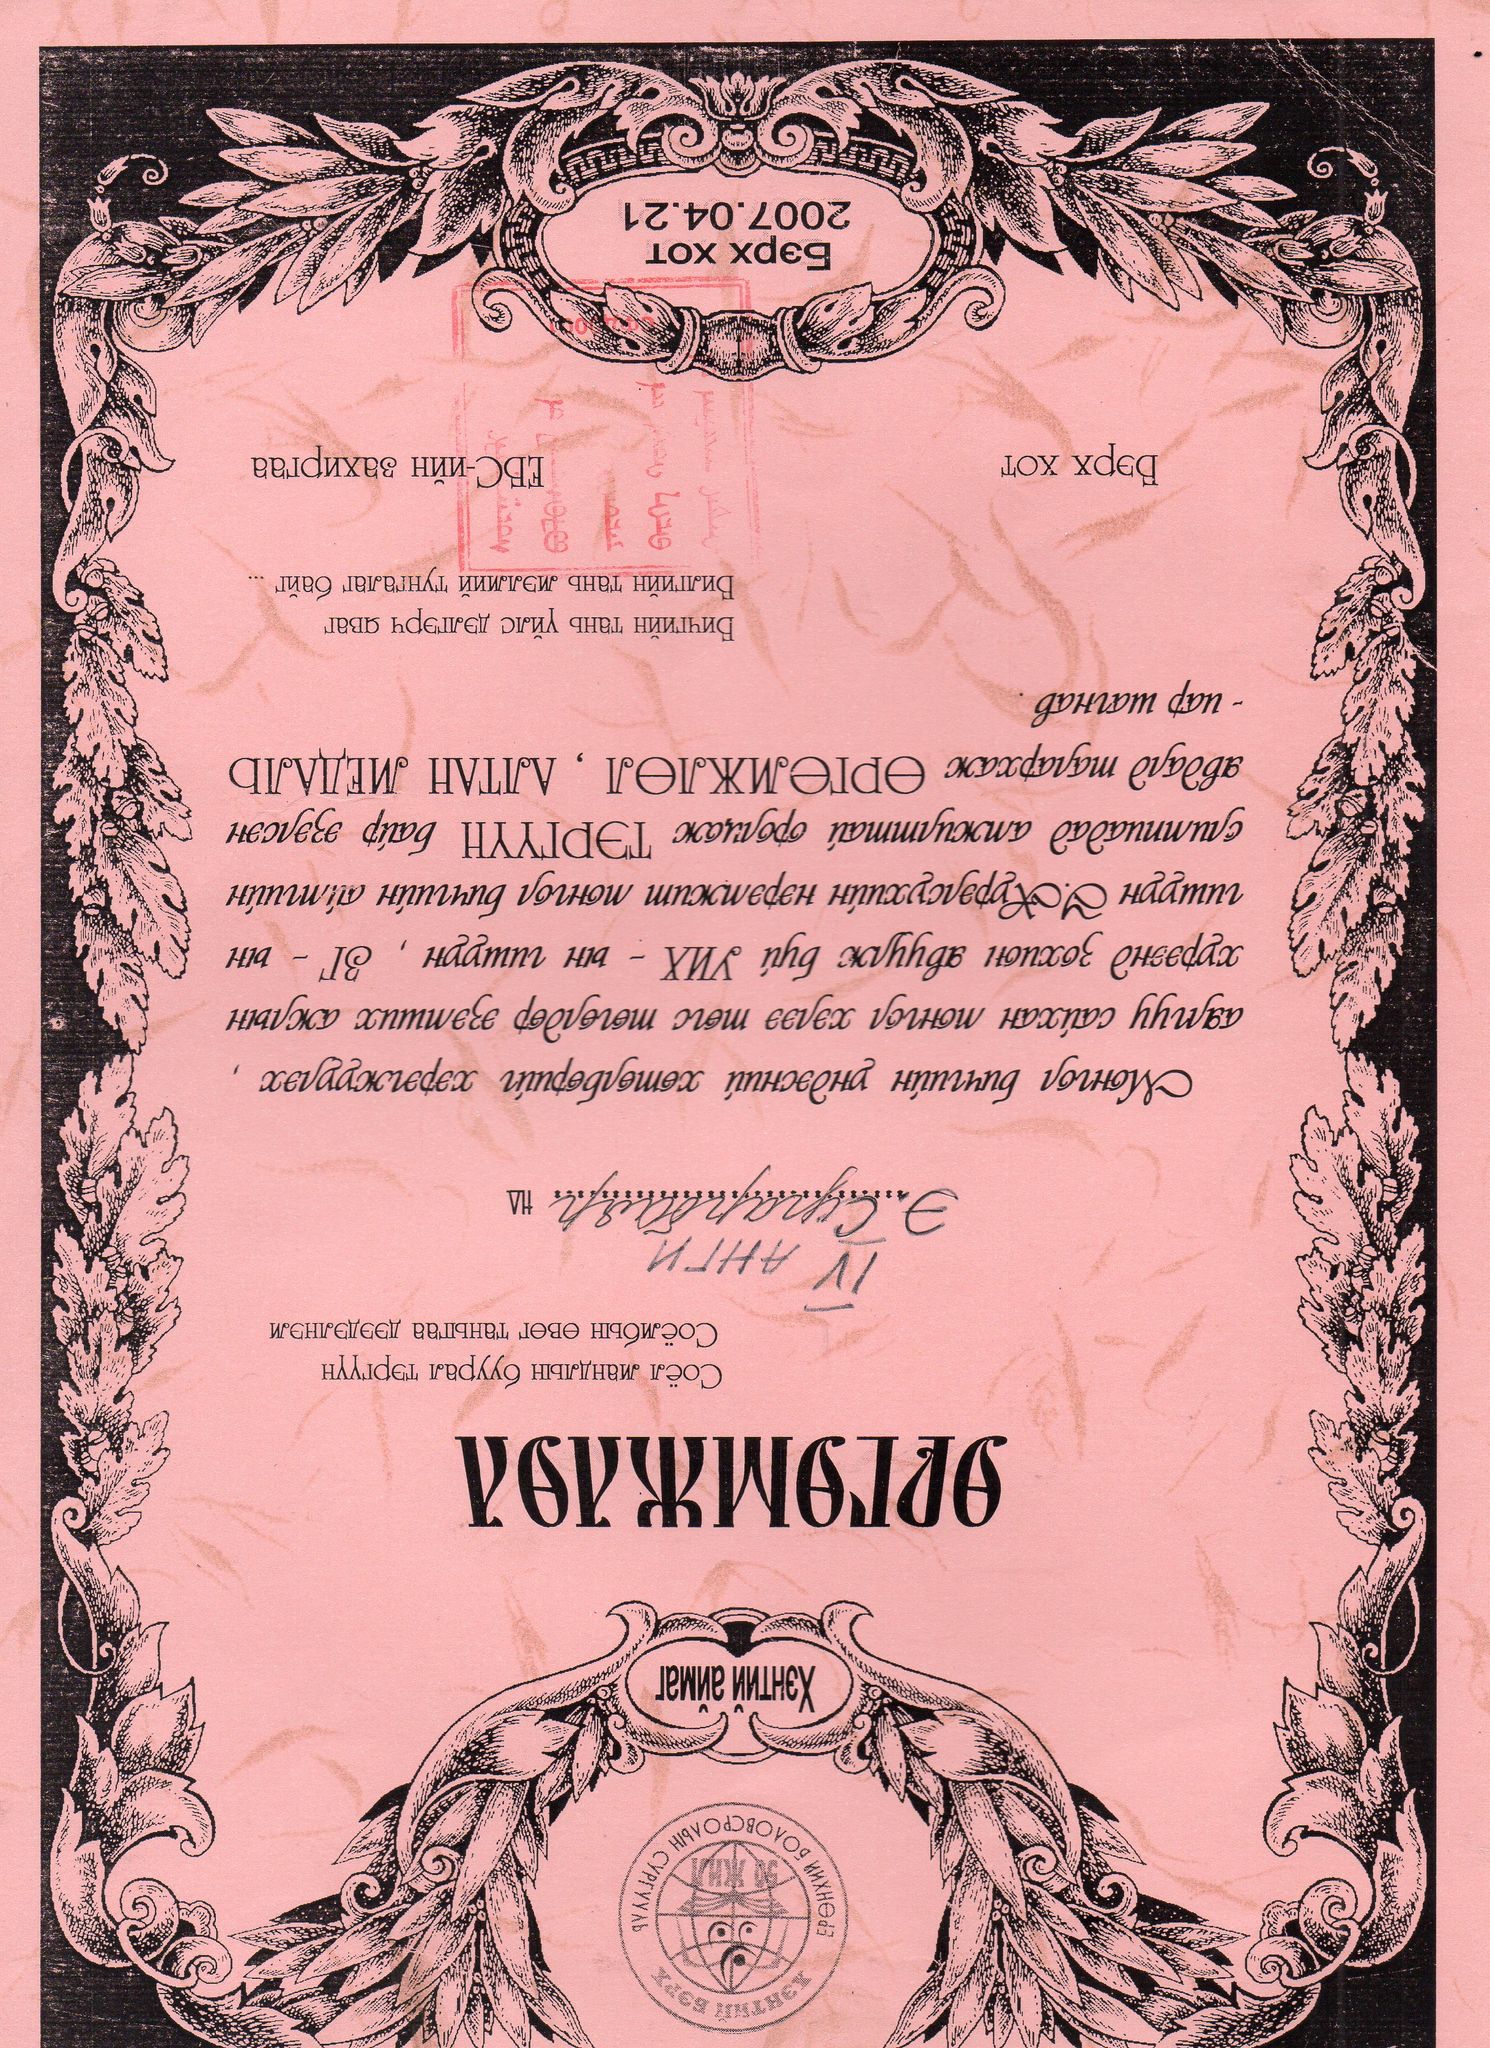 ХЭНТИЙ БЭРХ
50 ЖИЛ
ЕРӨНХИЙ БОЛОВСРОЛЫН СУРГУУЛЬ
Хэнтий аймаг
ӨРГӨМЖЛӨЛ
Соёл мандлын буурал тэргүүн
Соёмбын өвөг таныгаа дээдэлнэм
IV АНГИ
Э. Сугарбаяр НД
Монгол бичгийн үндэсний хөтөлбөрийг хэрэгжүүлэх ,
аялгуу сайхан монгол хэлээ төгс төгөлдөр эзэмших ажлын
хүрээнд зохион явуулж буй УИХ - ын гишүүн , ЗГ - ын
гишүүн У.Хүрэлсүхийн нэрэмжит монгол бичгийн аймгийн
олимпиадад амжилттай оролцож ТЭРГҮҮН байр эзэлсэн
явдалд талархаж ӨРГӨМЖЛӨЛ , АЛТАН МЕДАЛЬ
- иар шагнав .
Бичгийн тань үйлс дэлгэрч яваг
Билгийн тань мэлмий тунгалаг байг ...
Бэрх хот
ЕБС-ийн захиргаа
Бэрх хот
2007.04.21